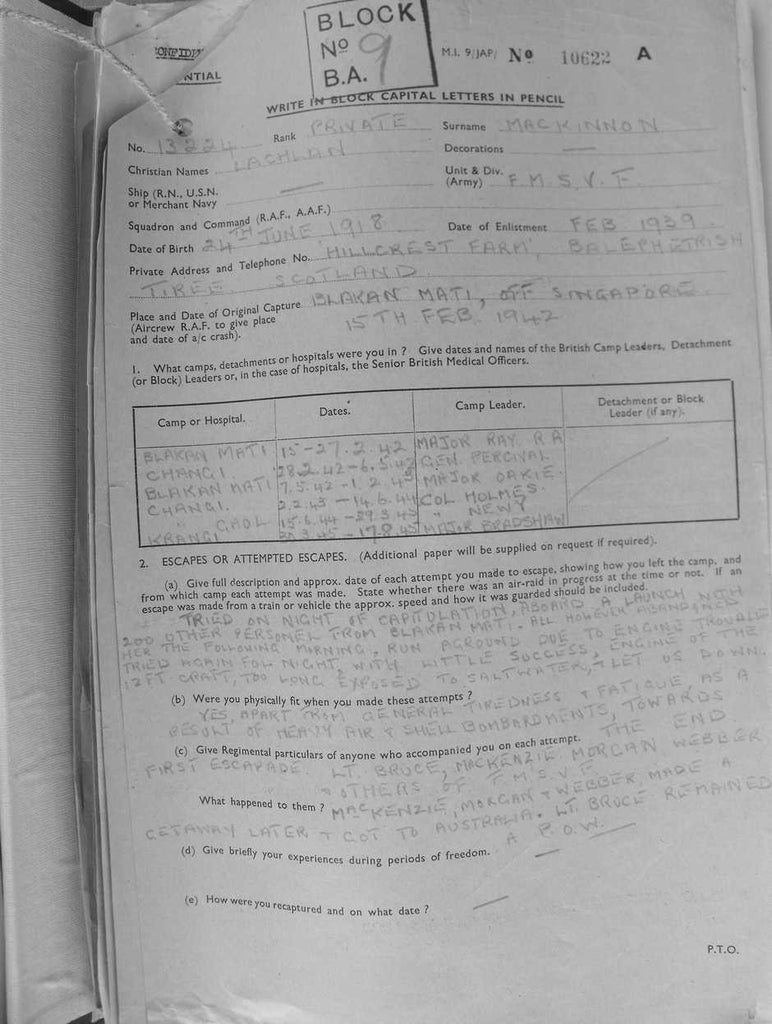 CONFIDENTIAL
BLOCK
Nº 9
B.A.
M.I. 9/JAP/ Nº 10622 A
WRITE IN BLOCK CAPITAL LETTERS IN PENCIL
No. 13224 Rank PRIVATE Surname MACKINNON
Christian Names LACHLAN Decorations —
Ship (R.N., U.S.N. or Merchant Navy — Unit & Div. (Army) F.M.S.V.F
Squadron and Command (R.A.F., A.A.F.)
Date of Birth 24TH JUNE 1918 Date of Enlistment FEB 1939
Private Address and Telephone No. 'HILLCREST FARM', BALEPHETRISH
TIREE SCOTLAND
Place and Date of Original Capture BLAKAN MATI, OFF SINGAPORE.
(Aircrew R.A.F. to give place
and date of a/c crash). 15TH FEB. 1942
1. What camps, detachments or hospitals were you in ? Give dates and names of the British Camp Leaders, Detachment
(or Block) Leaders or, in the case of hospitals, the Senior British Medical Officers.
Camp or Hospital. Dates. Camp Leader. Detachment or Block Leader (if any).
BLAKAN MATI 15-27.2.42 MAJOR RAY. R A
CHANGI. 28.2.42-6.5.42 GEN. PERCIVAL
BLAKAN MATI 7.5.42-1.2.43 MAJOR OAKIE.
CHANGI. 2.2.43-14.6.44 COL HOLMES.
" GAOL 15.6.44-29.3.45 " NEWY
KRANGI 30.3.45-17.8.45 MAJOR BRADSHAW
2. ESCAPES OR ATTEMPTED ESCAPES. (Additional paper will be supplied on request if required).
(a) Give full description and approx. date of each attempt you made to escape, showing how you left the camp, and
from which camp each attempt was made. State whether there was an air-raid in progress at the time or not. If an
escape was made from a train or vehicle the approx. speed and how it was guarded should be included.
TRIED ON NIGHT OF CAPITULATION, ABOARD A LAUNCH WITH
200 OTHER PERSONEL FROM BLAKAN MATI. ALL HOWEVER ABANDONED
HER THE FOLLOWING MORNING, RUN AGROUND DUE TO ENGINE TROUBLE
TRIED AGAIN FOL NIGHT, WITH LITTLE SUCCESS, ENGINE OF THE
12FT CRAFT, TOO LONG EXPOSED TO SALTWATER, & LET US DOWN.
(b) Were you physically fit when you made these attempts ?
YES, APART FROM GENERAL TIREDNESS & FATIGUE AS A
RESULT OF HEAVY AIR & SHELL BOMBARDMENTS, TOWARDS
THE END
(c) Give Regimental particulars of anyone who accompanied you on each attempt.
FIRST ESCAPADE. LT. BRUCE, MACKENZIE MORGAN WEBBER
& OTHERS OF F.M.S.V.F
What happened to them ? MACKENZIE, MORGAN & WEBBER, MADE A
GETAWAY LATER & GOT TO AUSTRALIA. LT. BRUCE REMAINED
A P.O.W.
(d) Give briefly your experiences during periods of freedom. —
(e) How were you recaptured and on what date ? —
P.T.O.